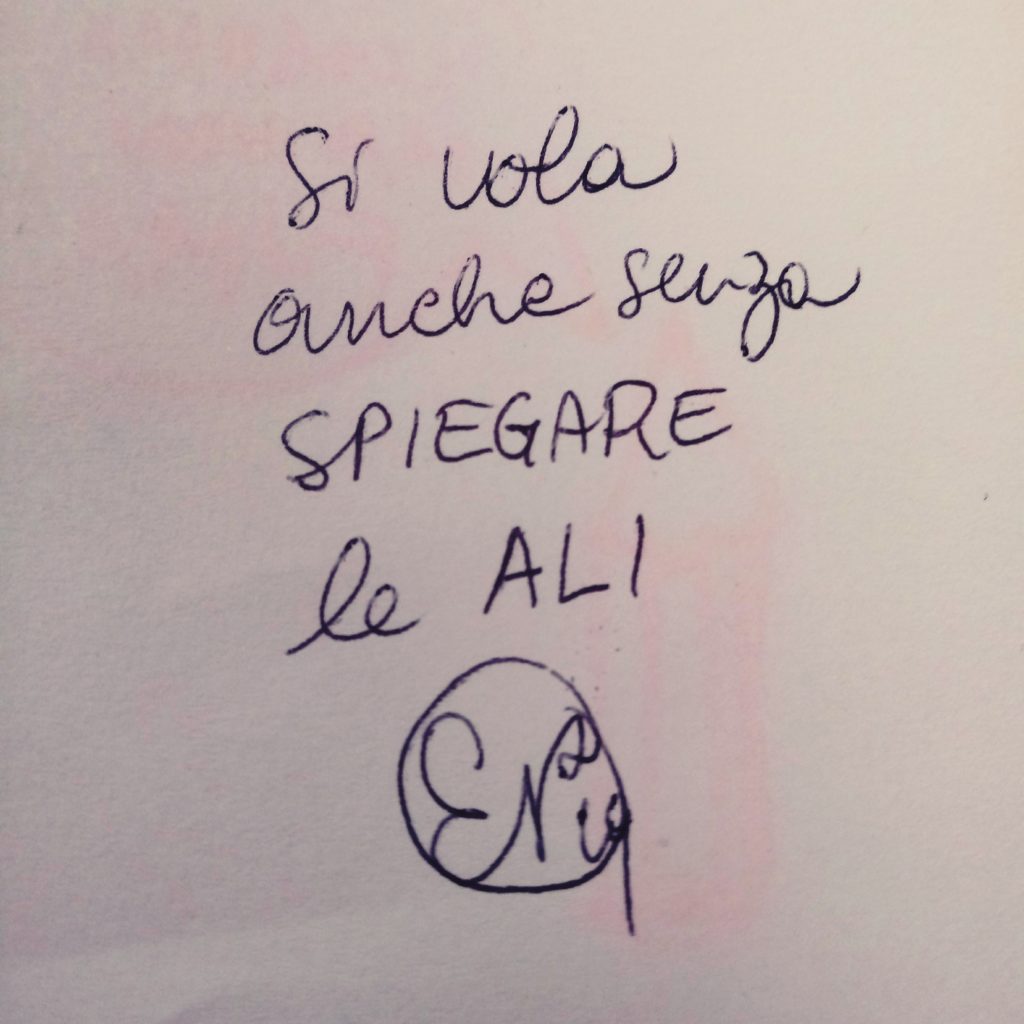 Si vola
anche senza
SPIEGARE
le ALI